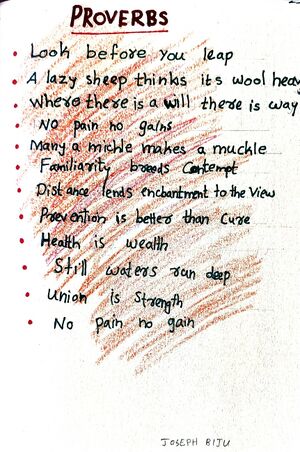 PROVERBS
Look before you leap
A lazy sheep thinks its wool heav
Where there is a will there is way
No pain no gains
Many a mickle makes a muckle
Familiarity breeds Contempt
Distance lends enchantment to the View
Prevention is better than Cure
Health is wealth
Still waters run deep
Union is Strength
No pain no gain
JOSEPH BIJU